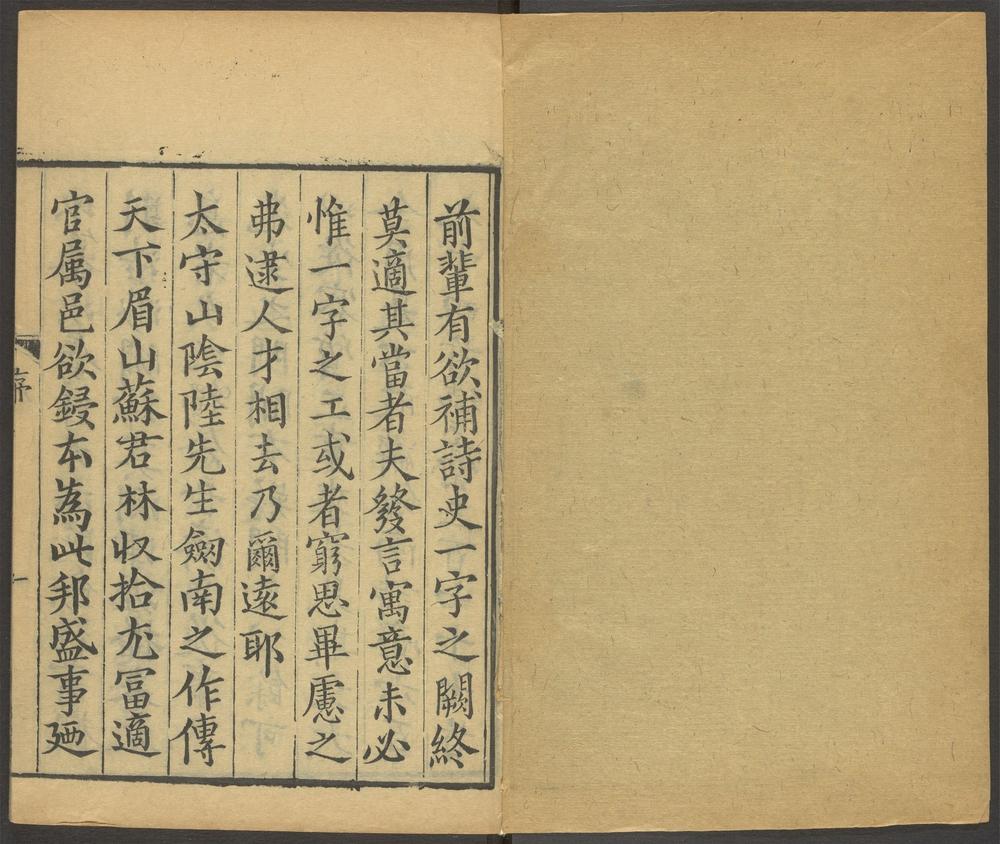 前輩有欲補詩史一字之闕終
莫適其當者夫發言寓意未必
惟一字之工或者窮思畢慮之
弗逮人才相去乃爾遠耶
太守山陰陸先生劒南之作傳
天下眉山蘇君林収拾尤冨適
官属邑欲鋟本為此邦盛事廼
序
一